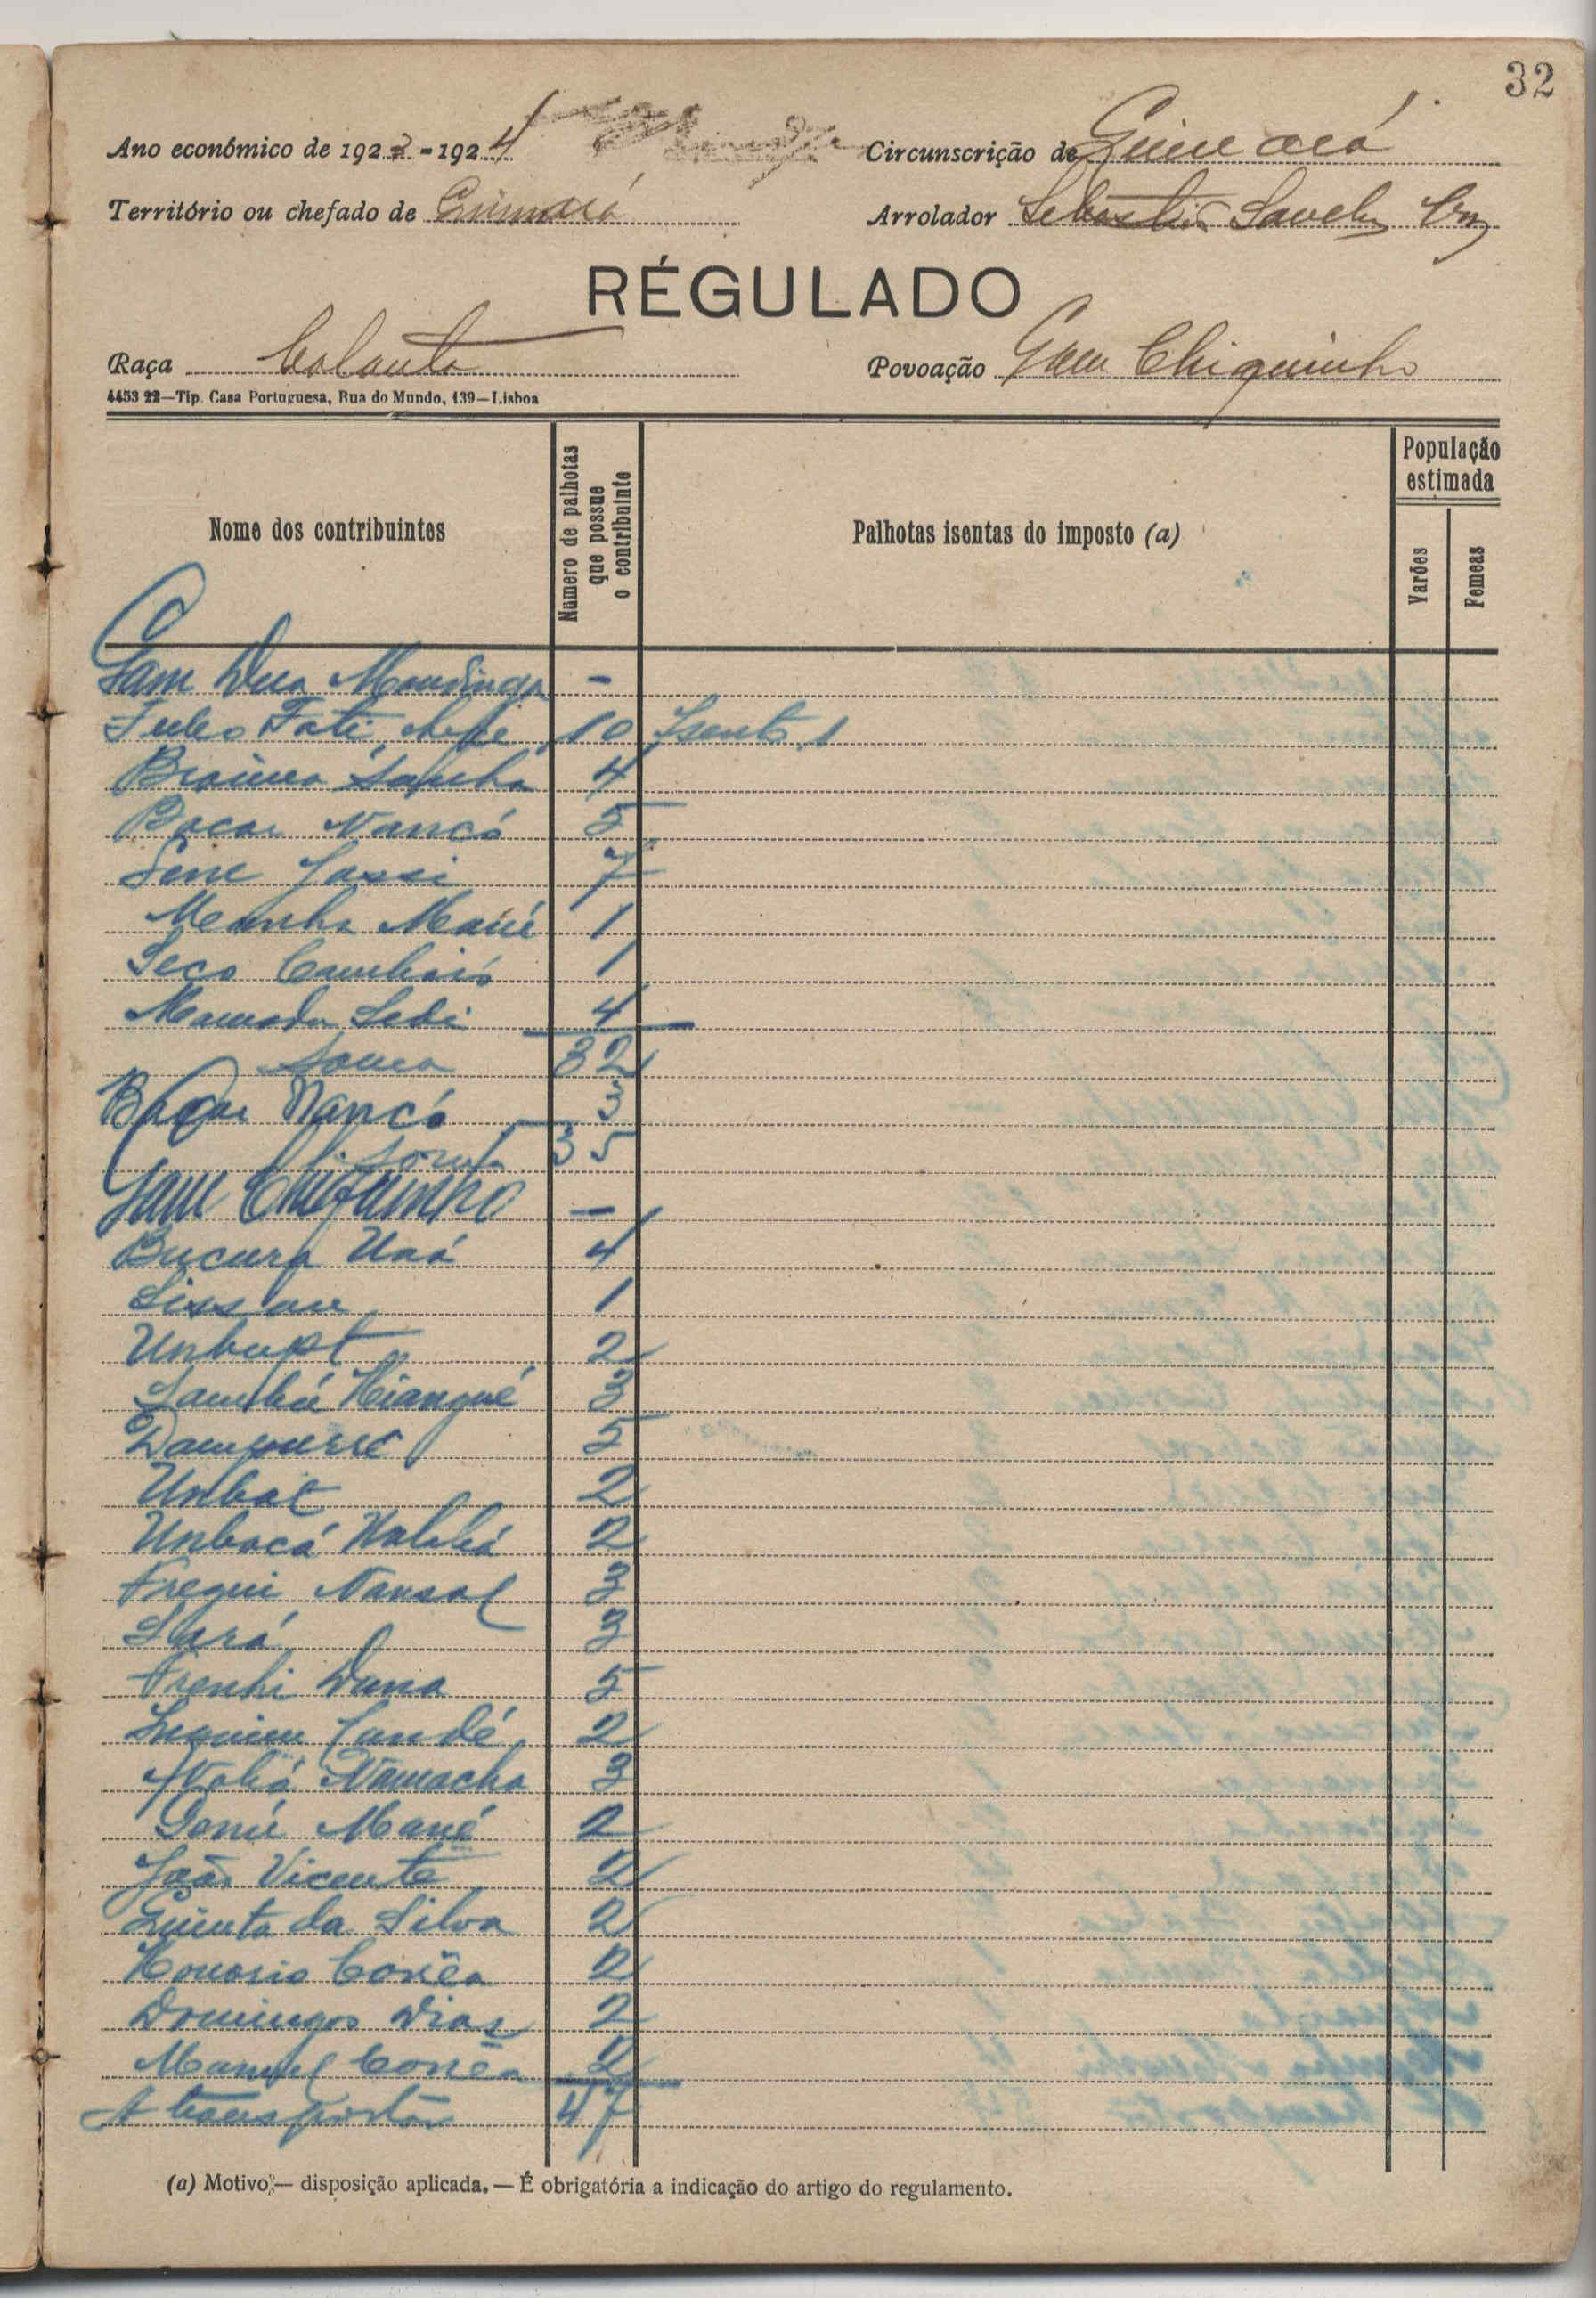 32
Ano económico de 1923-1924 Circunscrição de
Território ou chefado de Arrolador
RÉGULADO
Raça Balanta Povoação Gam Chiquinho
4453 22—Tip. Casa Portuguesa, Rua do Mundo, 139—Lisboa
Nome dos contribuintes
Número de palhotas que possue o contribuinte
Palhotas isentas do imposto (a)
População estimada
Varões
Femeas
Gam Dua Mandinga -
Fati, chefe 10 Isento 1
Braima Sanha 4
Bacar Nancó 5
Sene Jassi 7
Mané 1
Seco 1
Mamadu Sedi 4
Soma 32
Bacar Nancó 3
Soma 35
Gam Chiquinho -
Bucura Uaá 4
1
Unbupt 2
3
5
Unbat 2
Unbacá 2
Fregui Nansal 3
3
Dana 5
Candé 2
Namacha 3
Mané 2
João Vicente 2
Quinta da Silva 2
Honorio Corrêa 2
Domingos Dias 2
Manuel Corrêa 2
A transportar 47
(a) Motivo — disposição aplicada. — É obrigatória a indicação do artigo do regulamento.